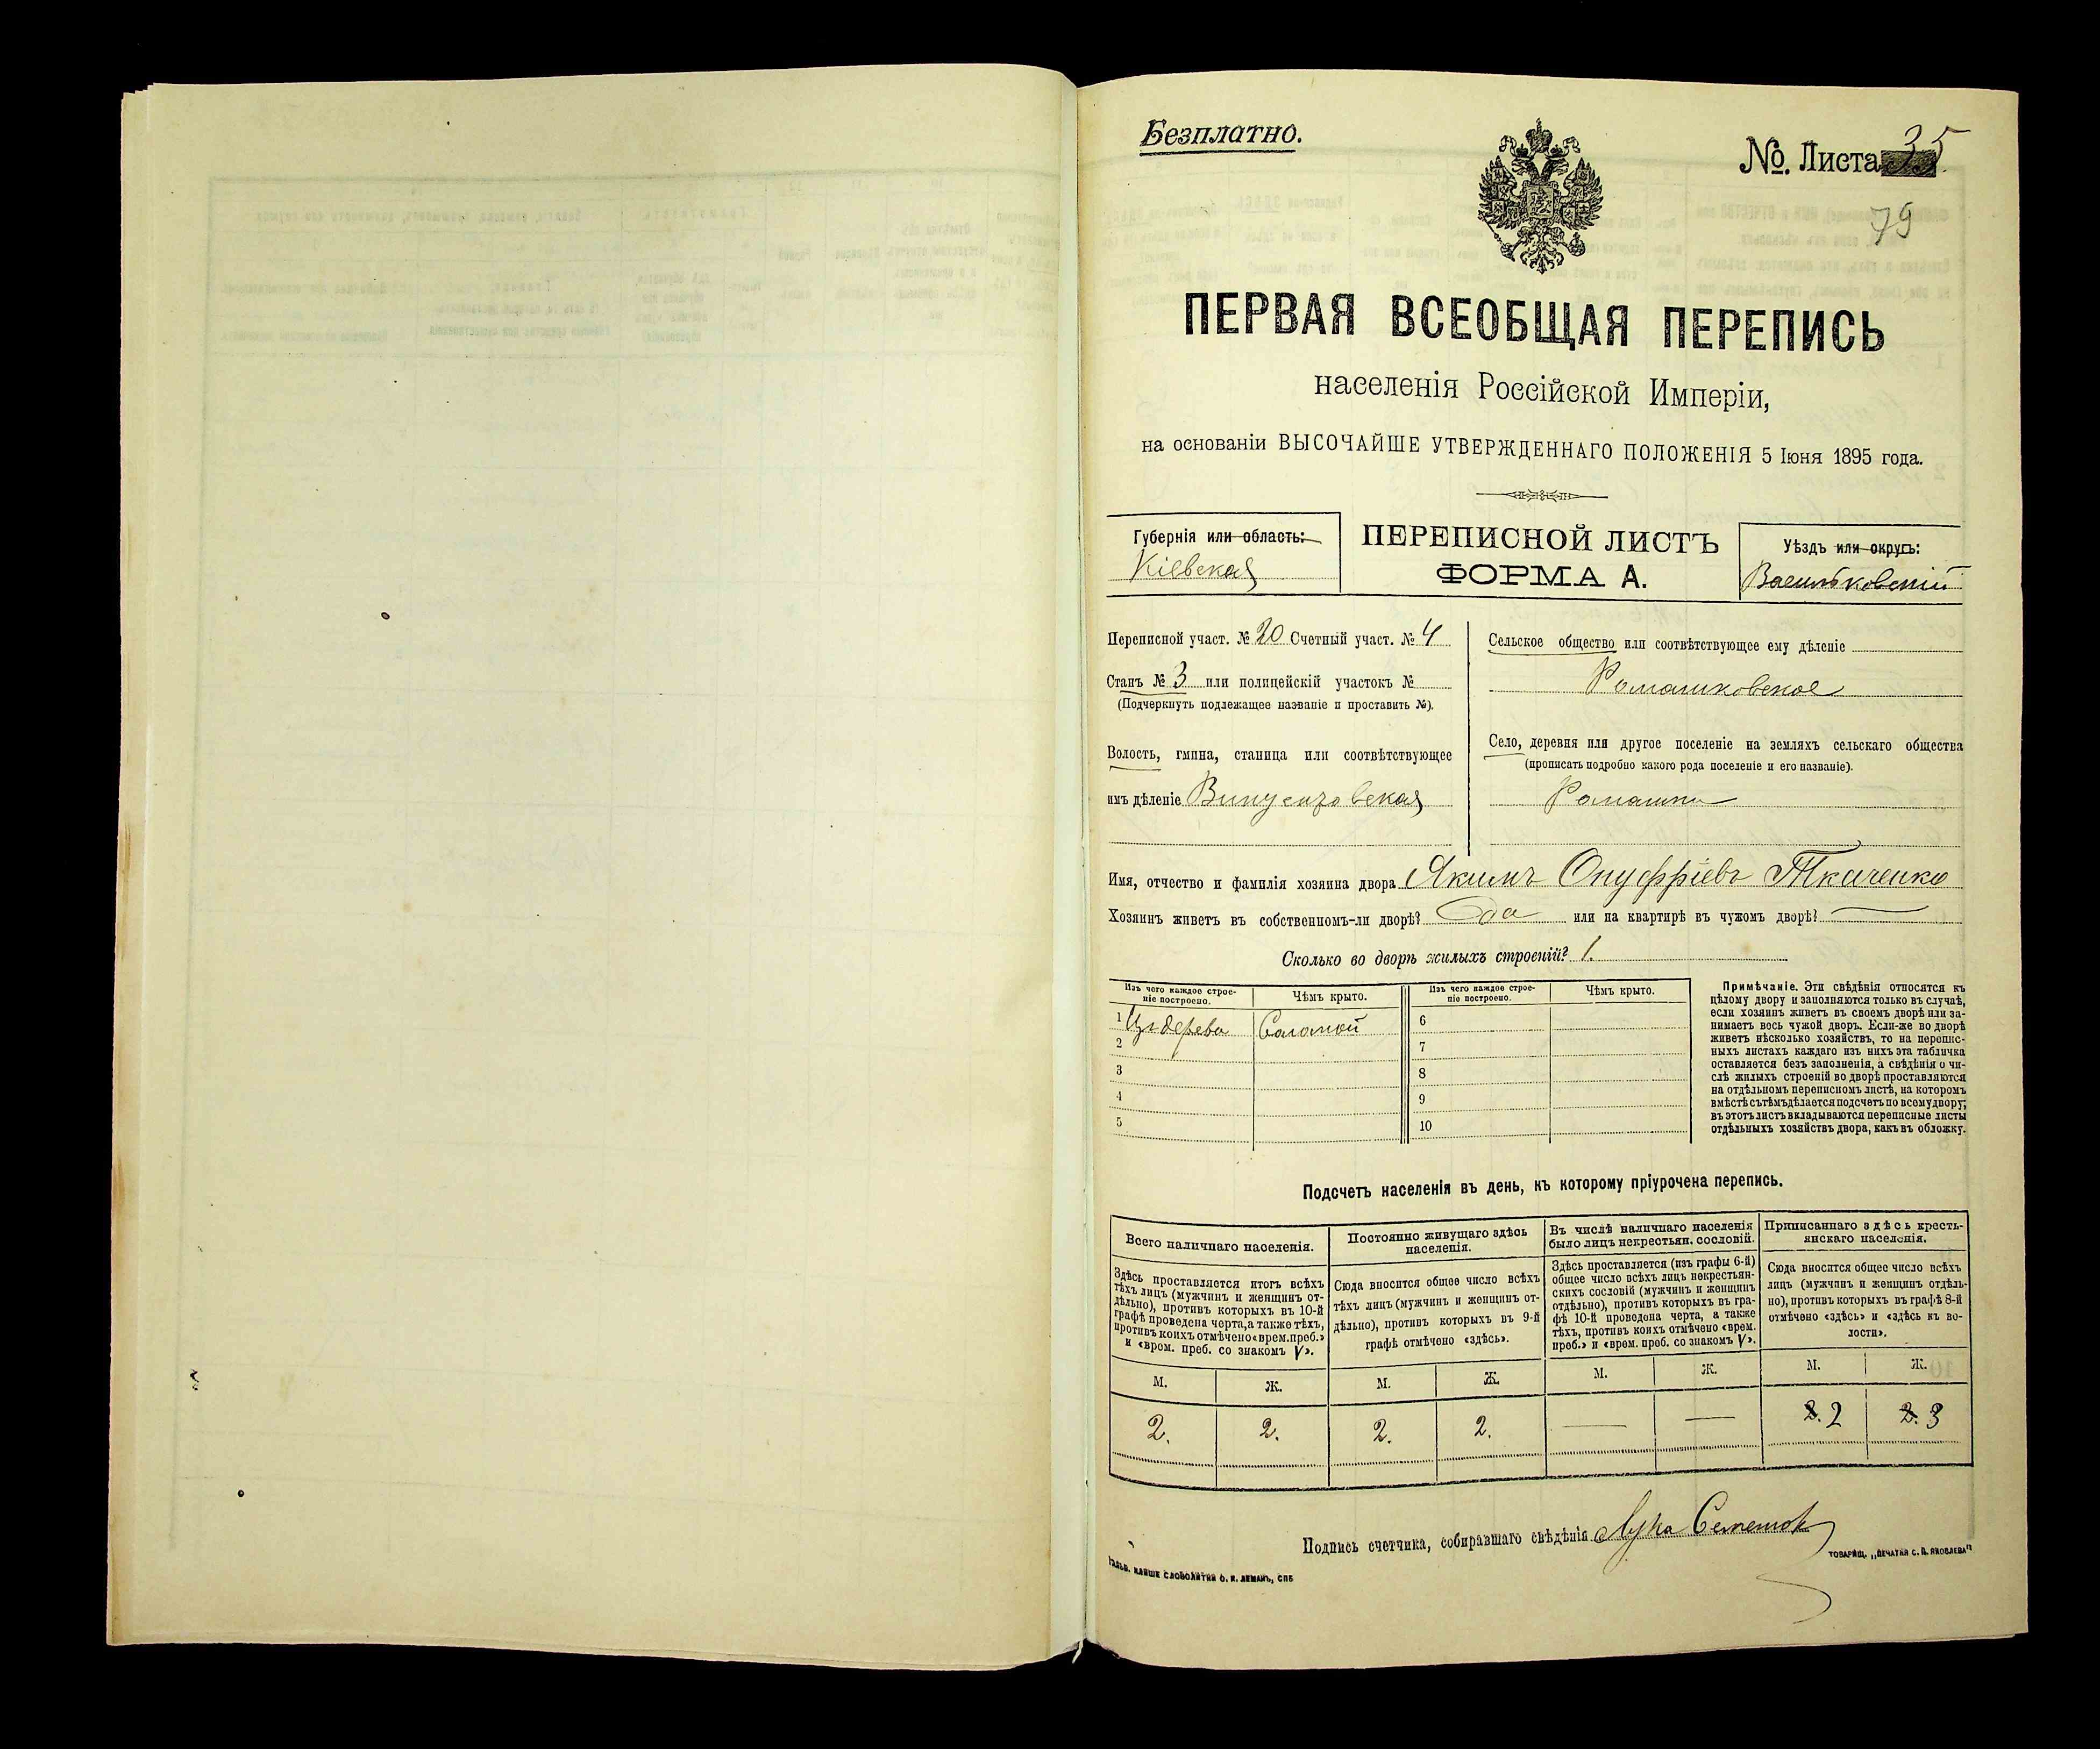 Безплатно.
№. Листа 35
79
ПЕРВАЯ ВСЕОБЩАЯ ПЕРЕПИСЬ
населенія Россійской Имперіи,
на основаніи ВЫСОЧАЙШЕ УТВЕРЖДЕННАГО ПОЛОЖЕНІЯ 5 Іюня 1895 года.
Губернія или область:
Кіевская
ПЕРЕПИСНОЙ ЛИСТЪ
ФОРМА А.
Уѣздъ или округъ:
Васильковскій
Переписной участ. № 20 Счетный участ. № 4
Станъ № 3 или полицейскій участокъ №
(Подчеркнуть подлежащее названіе и проставить №).
Волость, гмина, станица или соотвѣтствующее
имъ дѣленіе Винцентовская
Сельское общество или соотвѣтствующее ему дѣленіе
Ромашковское
Село, деревня или другое поселеніе на земляхъ сельскаго общества
(прописать подробно какого рода поселеніе и его названіе).
Ромашки
Имя, отчество и фамилія хозяина двора Якимъ Онуфріевъ Ткаченко
Хозяинъ живетъ въ собственномъ-ли дворѣ? Да или на квартирѣ въ чужомъ дворѣ? —
Сколько во дворѣ жилыхъ строеній? 1.
Изъ чего каждое строе-
ніе построено.
Чѣмъ крыто.
Изъ чего каждое строе-
ніе построено.
Чѣмъ крыто.
1 Изъ дерева Соломой
2
3
4
5
6
7
8
9
10
Примѣчаніе. Эти свѣдѣнія относятся къ
цѣлому двору и заполняются только въ случаѣ,
если хозяинъ живетъ въ своемъ дворѣ или за-
нимаетъ весь чужой дворъ. Если-же во дворѣ
живетъ нѣсколько хозяйствъ, то на перепис-
ныхъ листахъ каждаго изъ нихъ эта табличка
оставляется безъ заполненія, а свѣдѣнія о чи-
слѣ жилыхъ строеній во дворѣ проставляются
на отдѣльномъ переписномъ листѣ, на которомъ
вмѣстѣ съ тѣмъ дѣлается подсчетъ по всему двору;
въ этотъ листъ вкладываются переписные листы
отдѣльныхъ хозяйствъ двора, какъ въ обложку.
Подсчетъ населенія въ день, къ которому пріурочена перепись.
Всего наличнаго населенія.
Здѣсь проставляется итогъ всѣхъ
тѣхъ лицъ (мужчинъ и женщинъ от-
дѣльно), противъ которыхъ въ 10-й
графѣ проведена черта, а также тѣхъ,
противъ коихъ отмѣчено «врем. преб.»
и «врем. преб. со знакомъ V».
М. Ж.
2. 2.
Постоянно живущаго здѣсь
населенія.
Сюда вносится общее число всѣхъ
тѣхъ лицъ (мужчинъ и женщинъ от-
дѣльно), противъ которыхъ въ 9-й
графѣ отмѣчено «здѣсь».
М. Ж.
2. 2.
Въ числѣ наличнаго населенія
было лицъ некрестьян. сословій.
Здѣсь проставляется (изъ графы 6-й)
общее число всѣхъ лицъ некрестьян-
скихъ сословій (мужчинъ и женщинъ
отдѣльно), противъ которыхъ въ гра-
фѣ 10-й проведена черта, а также
тѣхъ, противъ коихъ отмѣчено «врем.
преб.» и «врем. преб. со знакомъ V».
М. Ж.
— —
Приписаннаго здѣсь кресть-
янскаго населенія.
Сюда вносится общее число всѣхъ
лицъ (мужчинъ и женщинъ отдѣль-
но), противъ которыхъ въ графѣ 8-й
отмѣчено «здѣсь» и «здѣсь къ во-
лости».
М. Ж.
2 3
Подпись счетчика, собиравшаго свѣдѣнія Лука
ТОВАРИЩ. „ПЕЧАТНЯ С. П. ЯКОВЛЕВА"
СЛОВОЛИТНЯ О. И. ЛЕМАНЪ, СПБ